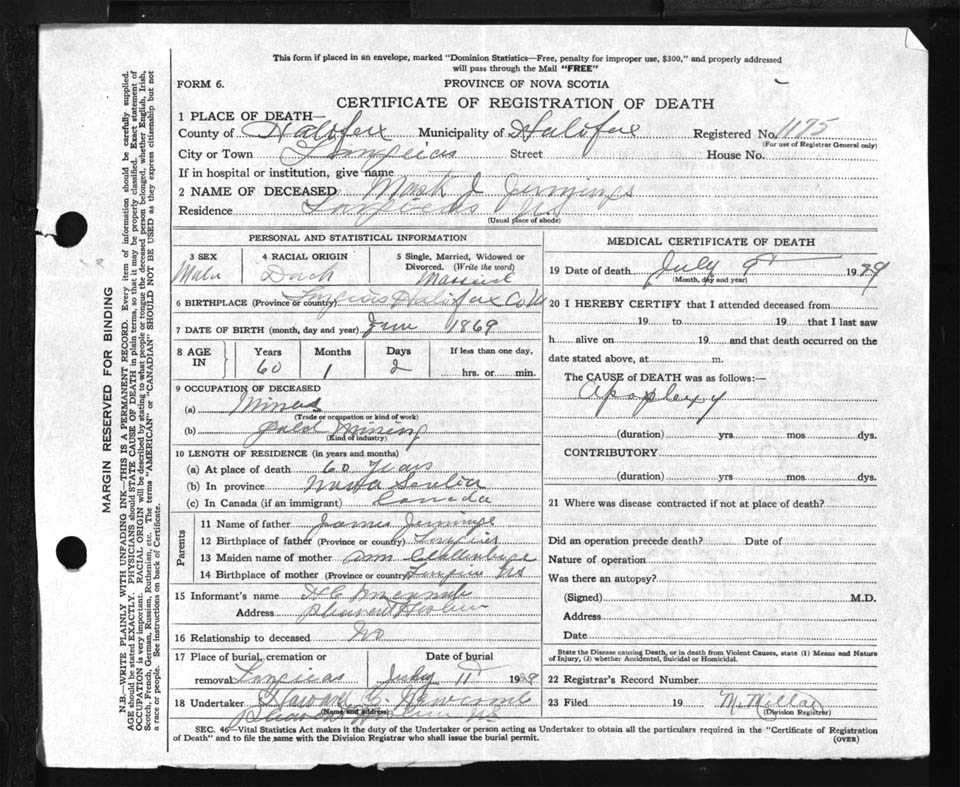 This form if placed in an envelope, marked "Dominion Statistics—Free, penalty for improper use, $300," and properly addressed
will pass through the Mail "FREE"
FORM 6.
PROVINCE OF NOVA SCOTIA
CERTIFICATE OF REGISTRATION OF DEATH
1 PLACE OF DEATH—
County of Halifax Municipality of Halifax Registered No. 1175
(For use of Registrar General only)
City or Town Street House No.
If in hospital or institution, give name
2 NAME OF DECEASED Mark J Jennings
Residence NS
(Usual place of abode)
PERSONAL AND STATISTICAL INFORMATION
3 SEX
Male
4 RACIAL ORIGIN
5 Single, Married, Widowed or
Divorced. (Write the word)
Married
6 BIRTHPLACE (Province or country) Halifax Co
7 DATE OF BIRTH (month, day and year) June 1869
8 AGE
IN
Years Months Days
60 1 2
If less than one day,
hrs. or min.
9 OCCUPATION OF DECEASED
(a) Miner
(Trade or occupation or kind of work)
(b) Gold Mining
(Kind of industry)
10 LENGTH OF RESIDENCE (in years and months)
(a) At place of death 60 Years
(b) In province Nova Scotia
(c) In Canada (if an immigrant) Canada
Parents
11 Name of father James Jennings
12 Birthplace of father (Province or country)
13 Maiden name of mother Ann
14 Birthplace of mother (Province or country) NS
15 Informant's name H C
Address
16 Relationship to deceased No
17 Place of burial, cremation or
removal
Date of burial
July 11 1929
18 Undertaker Howard G. Newcomb
(Name and address)
MEDICAL CERTIFICATE OF DEATH
19 Date of death July 9 1929
(Month, day and year)
20 I HEREBY CERTIFY that I attended deceased from
19 to 19 that I last saw
h alive on 19 and that death occurred on the
date stated above, at m.
The CAUSE of DEATH was as follows:—
Apoplexy
(duration) yrs mos dys.
CONTRIBUTORY
(duration) yrs mos dys.
21 Where was disease contracted if not at place of death?
Did an operation precede death? Date of
Nature of operation
Was there an autopsy?
(Signed) M.D.
Address
Date
State the Disease causing Death, or in death from Violent Causes, state (1) Means and Nature
of Injury, (2) whether Accidental, Suicidal or Homicidal.
22 Registrar's Record Number
23 Filed 19 Millar
(Division Registrar)
SEC. 46—Vital Statistics Act makes it the duty of the Undertaker or person acting as Undertaker to obtain all the particulars required in the "Certificate of Registration
of Death" and to file the same with the Division Registrar who shall issue the burial permit.
(OVER)
MARGIN RESERVED FOR BINDING
N.B.—WRITE PLAINLY WITH UNFADING INK—THIS IS A PERMANENT RECORD. Every item of information should be carefully supplied.
AGE should be stated EXACTLY. PHYSICIANS should STATE CAUSE OF DEATH in plain terms, so that it may be properly classified. Exact statement of
OCCUPATION is very important. RACIAL ORIGIN will be described by stating to what people or tongue the deceased person belonged, whether English, Irish,
Scotch, French, German, Russian, Ruthenian, etc. The terms "AMERICAN" or "CANADIAN" SHOULD NOT BE USED as they express citizenship but not
a race or people. See instructions on back of Certificate.